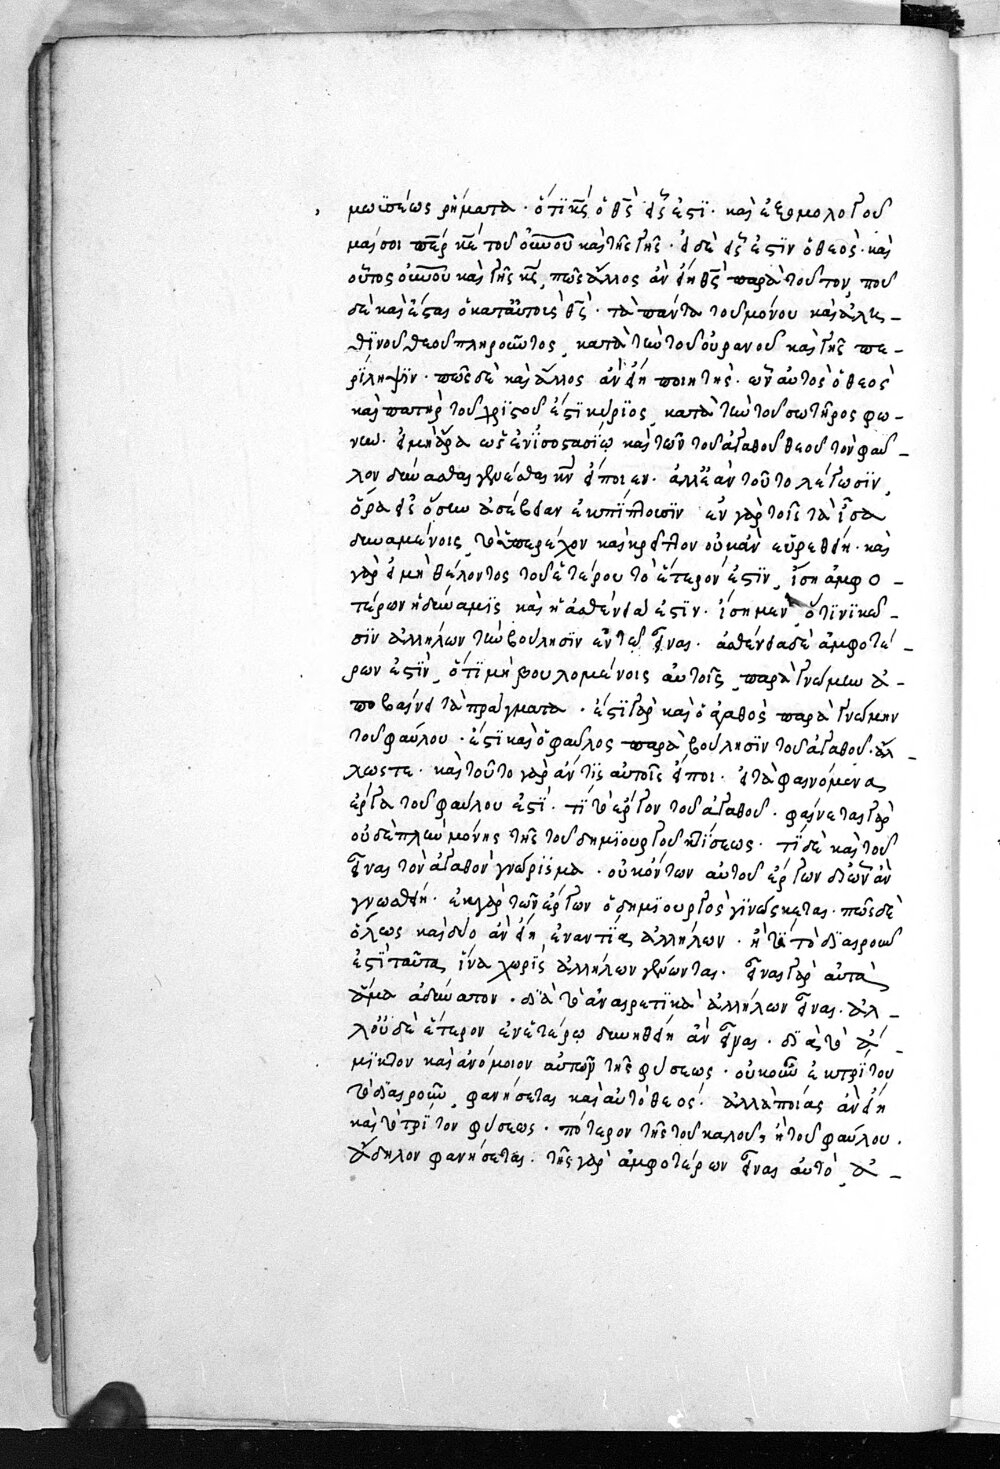 μωϊσέως ρήματα · ὅτι κς ὁ θς εἷς ἐστϊ · καὶ ἐξομολογοῦ
μαί σοι περ κε τοῦ οὐνοῦ καὶ τῆς γῆς · εἰ δὲ εἷς ἐστϊν ὁ θεὸς · καὶ
οὗτος οὐνοῦ καὶ γῆς κς, πῶς ἄλλος ἂν εἴη θς παρὰ τοῦτον, ποῦ
δὲ καὶ ἔσται ὁ κατ' αὐτοὺς θς · τὰ πάντα τοῦ μόνου καὶ ἀλη–
θϊνοῦ θεοῦ πληροῦντος, κατὰ τὴν τοῦ οὐρανοῦ καὶ γῆς πε–
ρϊληψϊν · πῶς δὲ καὶ ἄλλος ἂν εἴη ποιητὴς · ὧν αὐτὸς ὁ θεὸς
καὶ πατὴρ τοῦ χριστοῦ ἐστϊ κύρϊος, κατὰ τὴν τοῦ σωτῆρος φω–
νὴν · εἰ μὴ ἄρα ὡς ἐν ἰσοστασίῳ καὶ τῶν τοῦ ἀγαθοῦ θεοῦ τὸν φαῦ–
λον δύνασθαι γενέσθαι κν εἴποιεν · ἀλλ' ἐὰν τοῦτο λέγωσϊν,
ὅρα εἰς ὅσην ἀσέβειαν ἐκπίπτουσϊν ἐν γὰρ τοῖς τὰ ἶσα
δυναμένοις, τὸ ὑπερέχον καὶ κρεῖττον οὐκ ἂν εὑρεθείη · καὶ
γὰρ εἰ μὴ θέλοντος τοῦ ἑτέρου τὸ ἕτερόν ἐστϊν, ἴση ἀμφο–
τέρων ἡ δύναμϊς καὶ ἡ ἀσθένειά ἐστϊν · ἴση μὲν, ὅτϊ νϊκῶ–
σϊν ἀλλήλων τὴν βούλησϊν ἐν τῷ εἶναι · ἀσθένεια δὲ ἀμφοτέ–
ρων ἐστϊν, ὅτϊ μὴ βουλομένοις αὐτοῖς, παρὰ γνώμην ἀ–
ποβαίνει τὰ πράγματα · ἔστϊ γὰρ καὶ ὁ ἀγαθὸς παρὰ γνώμην
τοῦ φαύλου · ἔστϊ καὶ ὁ φαῦλος παρὰ βούλησϊν τοῦ ἀγαθοῦ · ἄλ–
λωστε · καὶ τοῦτο γὰρ ἄν τϊς αὐτοῖς εἴποι · εἰ τὰ φαινόμενα
ἔργα τοῦ φαύλου ἐστϊ · τί τὸ ἔργον τοῦ ἀγαθοῦ · φαίνεται γὰρ
οὐδὲν πλὴν μόνης τῆς τοῦ δημϊουργοῦ κτίσεως · τϊ δὲ καὶ τοῦ
εἶναι τὸν ἀγαθὸν γνώρϊσμα · οὐκ ὄντων αὐτοῦ ἔργων δι' ὧν ἂν
γνωσθείη · ἐκ γὰρ τῶν ἔργων ὁ δημϊουργὸς γϊνώσκεται · πῶς δὲ
ὅλως καὶ δύο ἂν εἴη ἐναντία ἀλλήλων · ἢ τί τὸ δϊαιροῦν
ἐστϊ ταῦτα, ἵνα χωρὶς ἀλλήλων γένωνται · εἶναι γὰρ αὐτὰ
ἅμα ἀδύνατον · δϊὰ τὸ ἀναιρετϊκὰ ἀλλήλων εἶναι · ἀλ–
λ' οὐδὲ ἕτερον ἐν ἑτέρῳ δυνηθείη ἂν εἶναι · δϊὰ τὸ ἄ–
μϊκτον καὶ ἀνόμοιον αὐτῶν τῆς φύσεως · οὐκοῦν ἐκ τρϊτου
τὸ δϊαιροῦν, φανήσεται καὶ αὐτὸ θεὸς · ἀλλὰ ποίας ἂν εἴη
καὶ τὸ τρίτον φύσεως · πότερον τῆς τοῦ καλοῦ, ἢ τοῦ φαύλου ·
ἄδηλον φανήσεται · τῆς γὰρ ἀμφοτέρων εἶναι αὐτὸ, ἀ–